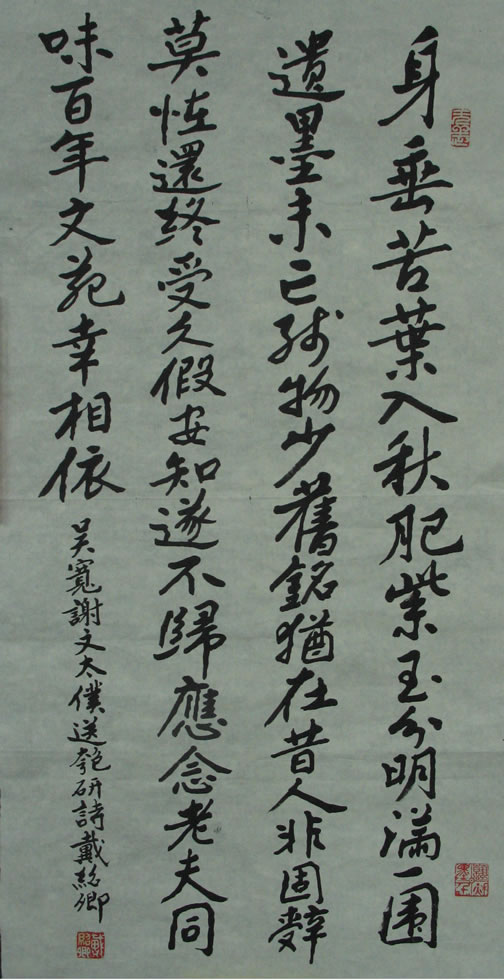 身垂苦葉入秋肥紫玉分明滿一圍
遺墨未亡殘物少舊銘猶在昔人非固辭
莫怪還終受久假安知遂不歸應念老夫同
味百年文苑幸相依
吳寬謝文太僕送匏研詩戴紹卿